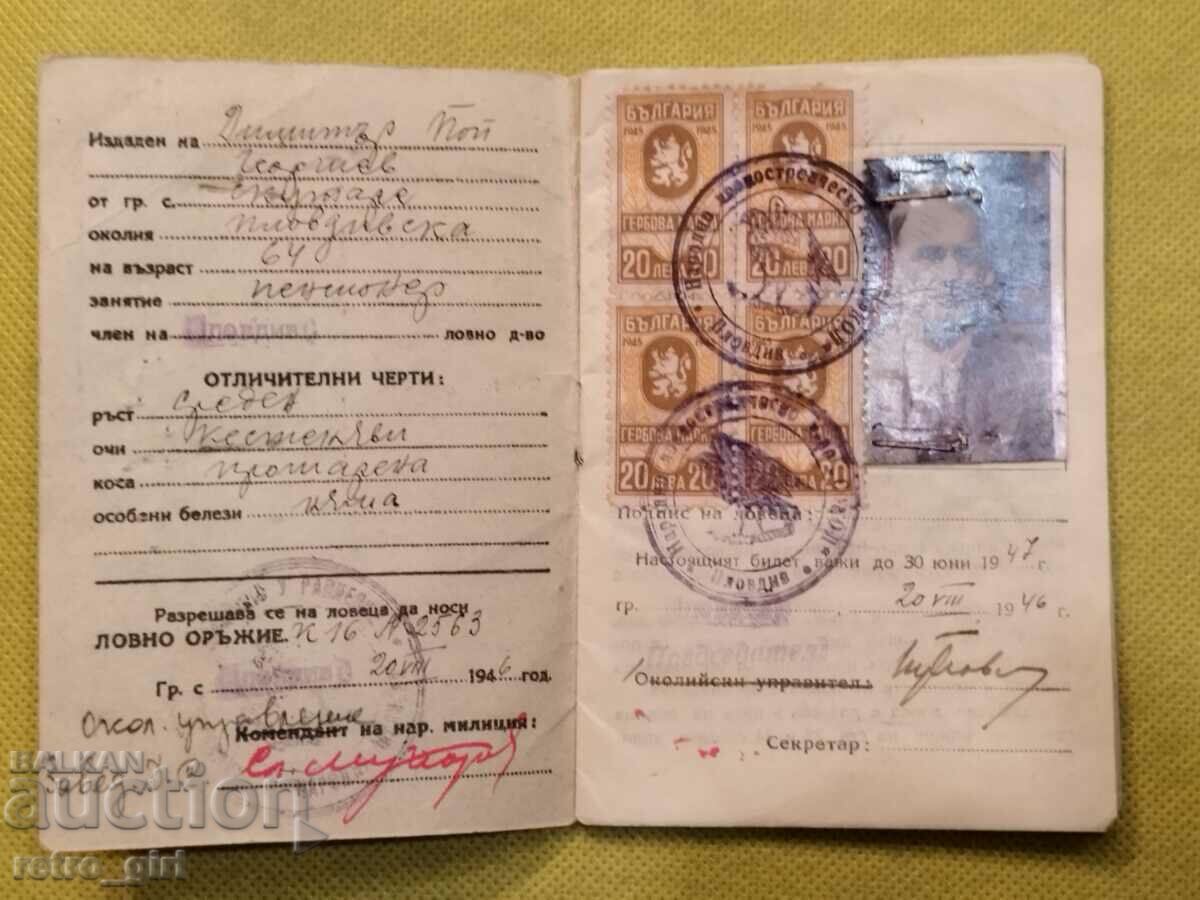 Издаден на Димитър Поп
Георгиев
от гр. с.
околия Пловдивска
на възраст 64
занятие пенсионер
член на Пловдив ловно д-во
ОТЛИЧИТЕЛНИ ЧЕРТИ:
ръст среден
очи кестеняви
коса прошарена
особени белези няма
Разрешава се на ловеца да носи
ЛОВНО ОРЪЖИЕ. К 16 № 2563
Гр. с Пловдив 20 VIII 1946 год.
Окол. управление
Комендант на нар. милиция:
БЪЛГАРИЯ БЪЛГАРИЯ
1945 1945 1945 1945
ГЕРБОВА МАРКА ГЕРБОВА МАРКА
20 ЛЕВА 20 20 ЛЕВА 20
БЪЛГАРИЯ БЪЛГАРИЯ
1945 1945
ГЕРБОВА МАРКА ГЕРБОВА МАРКА
20 ЛЕВА 20 20 ЛЕВА 20
Пловдив
Пловдив
Подпис на ловеца:
Настоящият билет важи до 30 юни 1947 г.
гр. , 20 VIII 1946 г.
Околийски управител:
Секретар:
BALKAN
auction
retro_girl